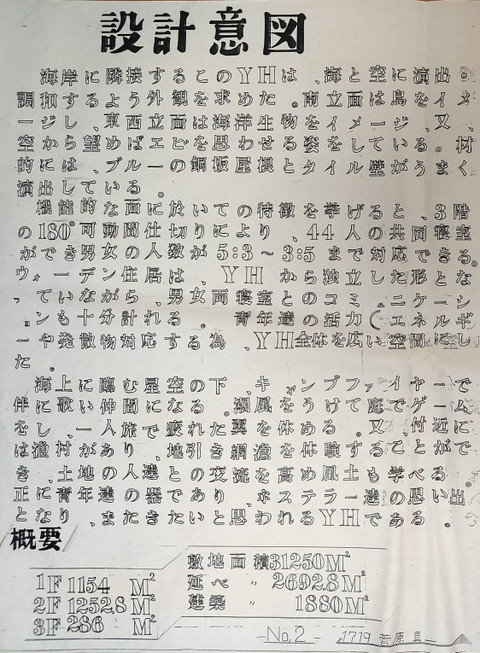 設計意図
海岸に隣接するこのYHは、海と空に演出
調和するよう外観を求めた。南立面は鳥をイメ
ージし、東西立面は海洋生物をイメージ、又、
空から望めばエビを思わせる姿をしている。材
的には、ブルーの銅坂屋根とタイル壁がうまく
演出している。
機能的な面に於いての特徴を挙げると、3階
の180°可動間仕切りにより、44人の共同寝室
ができ男女の人数が5:3~3:5まで対応できる。
ウォーデン住居は、YHから独立した形とな
っていながら、男女両寝室とのコミュニケーシ
ョンも十分計れる。青年達の活力(エネルギ
ーや発散物対応する為、YH全体を広い空間にし
た。
海上に臨む星空の下、キャンプファイヤーで
伴に歌い仲間になる。潮風をうけて庭でゲーム
をし、一人旅で疲れた翼を休める。又、付近に
は漁村があり、地引き網漁を体験することがで
き、土地の人達との交流を高め風土も学べる。
正に青年達の器であり、ホステラー達の思い出
となり、またきたいと思われるYHである。
概要
1F 1154 M²
2F 1252.8 M²
3F 286 M²
敷地面積 31250M²
延べ 〃 2692.8M²
建築 〃 1880M²
No.2 1719 菅原真一